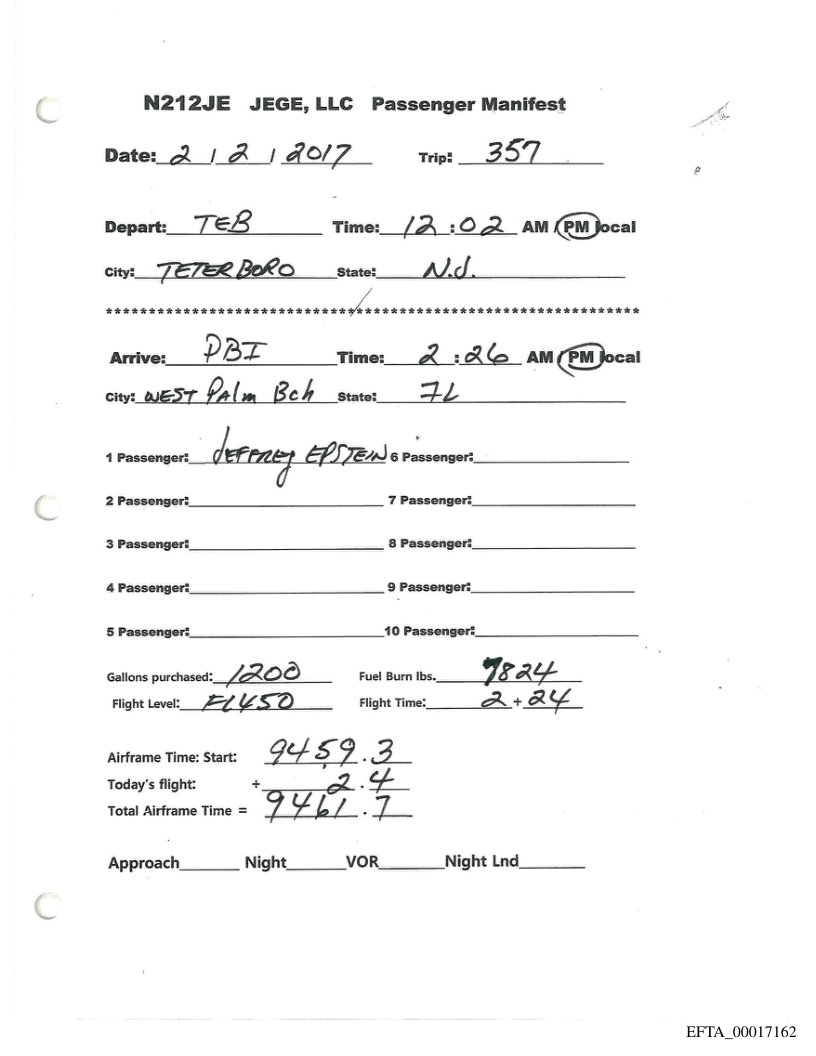 N212JE JEGE, LLC Passenger Manifest
Date: 2 / 2 / 2017 Trip: 357
Depart: TEB Time: 12 : 02 AM / PM local
City: TETERBORO State: N.J.
*****************************************************************
Arrive: PBI Time: 2 : 26 AM / PM local
City: WEST Palm Bch State: FL
1 Passenger: JEFFREY EPSTEIN 6 Passenger:
2 Passenger: 7 Passenger:
3 Passenger: 8 Passenger:
4 Passenger: 9 Passenger:
5 Passenger: 10 Passenger:
Gallons purchased: 1200 Fuel Burn lbs. 7824
Flight Level: FL450 Flight Time: 2 + 24
Airframe Time: Start: 9459.3
Today's flight: + 2.4
Total Airframe Time = 9461.7
Approach Night VOR Night Lnd
EFTA_00017162